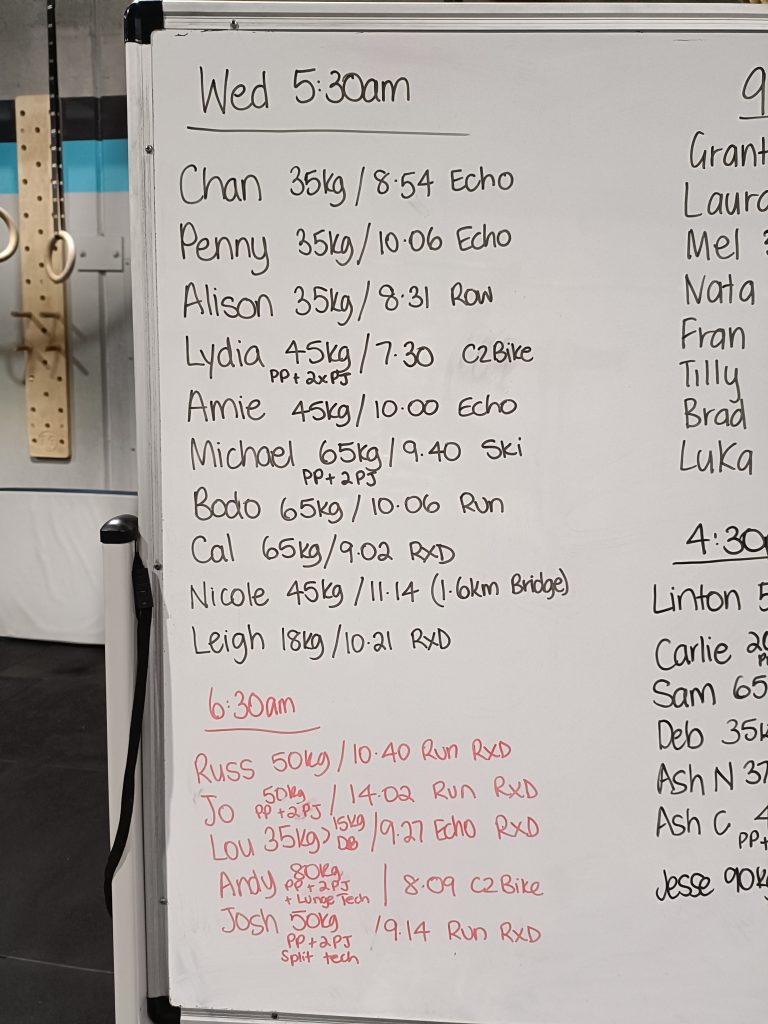 Wed 5:30am
Chan 35kg/8.54 Echo
Penny 35kg/10.06 Echo
Alison 35kg/8.31 Row
Lydia 45kg/7.30 C2Bike
PP+2xPJ
Amie 45kg/10.00 Echo
Michael 65kg/9.40 Ski
PP+2PJ
Bodo 65kg/10.06 Run
Cal 65kg/9.02 RXD
Nicole 45kg/11.14 (1.6km Bridge)
Leigh 18kg/10.21 RXD
6:30am
Russ 50kg/10.40 Run RXD
Jo 50kg / 14.02 Run RXD
PP+2PJ
Lou 35kg> 15kg /9.27 Echo RXD
DB
Andy 80kg | 8.09 C2Bike
PP+2PJ
+ Lunge Tech
Josh 50kg /9.14 Run RXD
PP+2PJ
Split tech
9
Grant
Laura
Mel
Nata
Fran
Tilly
Brad
Luka
4:30
Linton 5
Carlie 20
Sam 65
Deb 35k
Ash N 37
Ash C 4
PP+
Jesse 90k